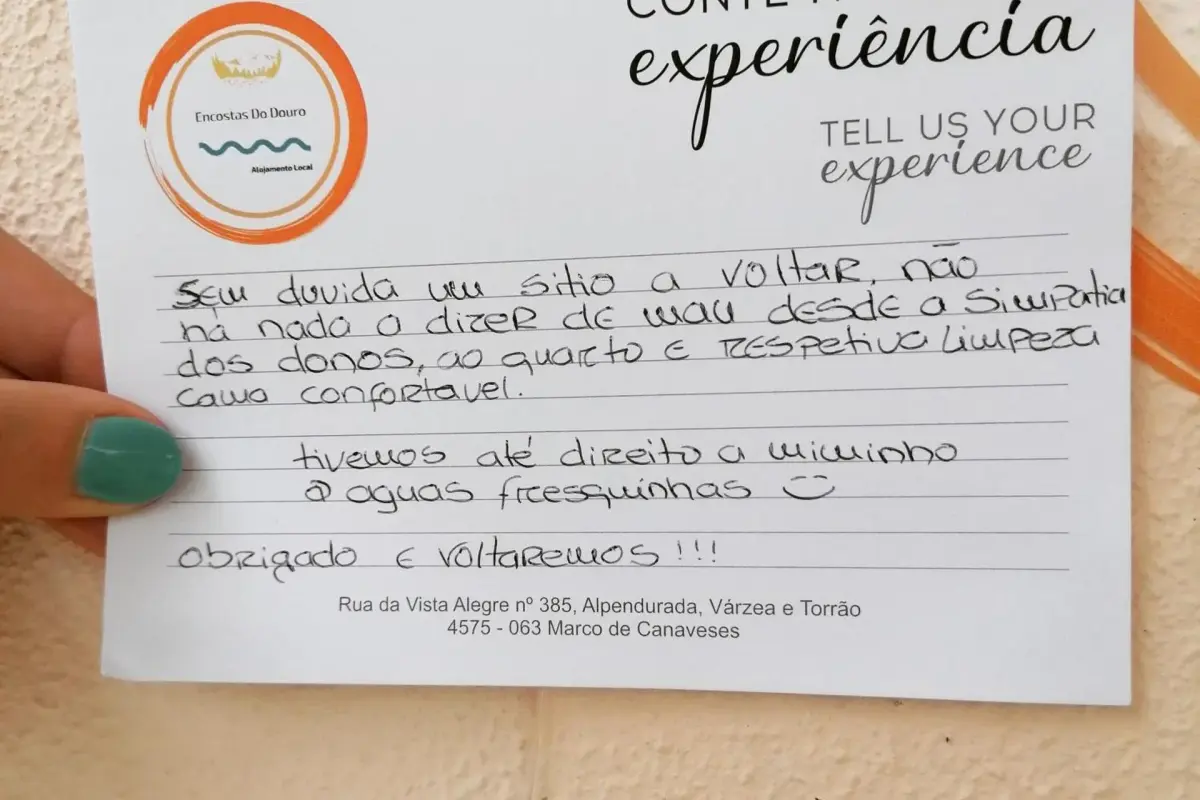 experiência
TELL US YOUR
experience
Encostas Do Douro
Alojamento Local
Sem duvida um sitio a voltar, não
há nada a dizer de mau desde a simpatia
dos donos, ao quarto e respetiva limpeza
cama confortavel.
tivemos até direito a miminho
aguas freesquinhas
obrigado e voltaremos!!!
Rua da Vista Alegre nº 385, Alpendurada, Várzea e Torrão
4575 - 063 Marco de Canaveses